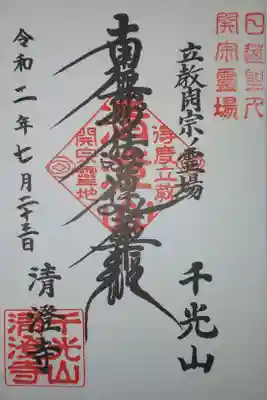 日蓮聖人
開宗霊場
立教開宗ノ霊場
千光山
南無妙法蓮華経
得度立教
開宗霊地
令和二年七月二十三日
清澄寺
千光山
清澄寺